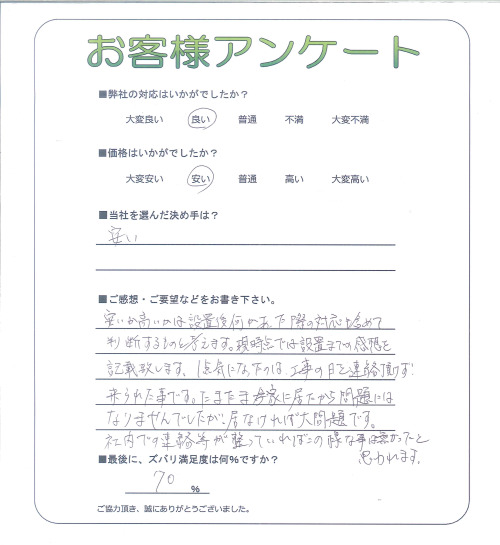 お客様アンケート
■弊社の対応はいかがでしたか？
大変良い 良い 普通 不満 大変不満
■価格はいかがでしたか？
大変安い 安い 普通 高い 大変高い
■当社を選んだ決め手は？
安い
■ご感想・ご要望などをお書き下さい。
安いか高いかは設置後何かあった際の対応も含めて
判断するものと考えます。現時点では設置までの感想を
記載致します。1点気になったのは、工事の日を連絡頂けず
来られた事です。たまたま家に居たから問題には
なりませんでしたが、居なければ大問題です。
社内での連絡等が整っていればこの様な事は無かったと
思われます。
■最後に、ズバリ満足度は何％ですか？
70 %
ご協力頂き、誠にありがとうございました。